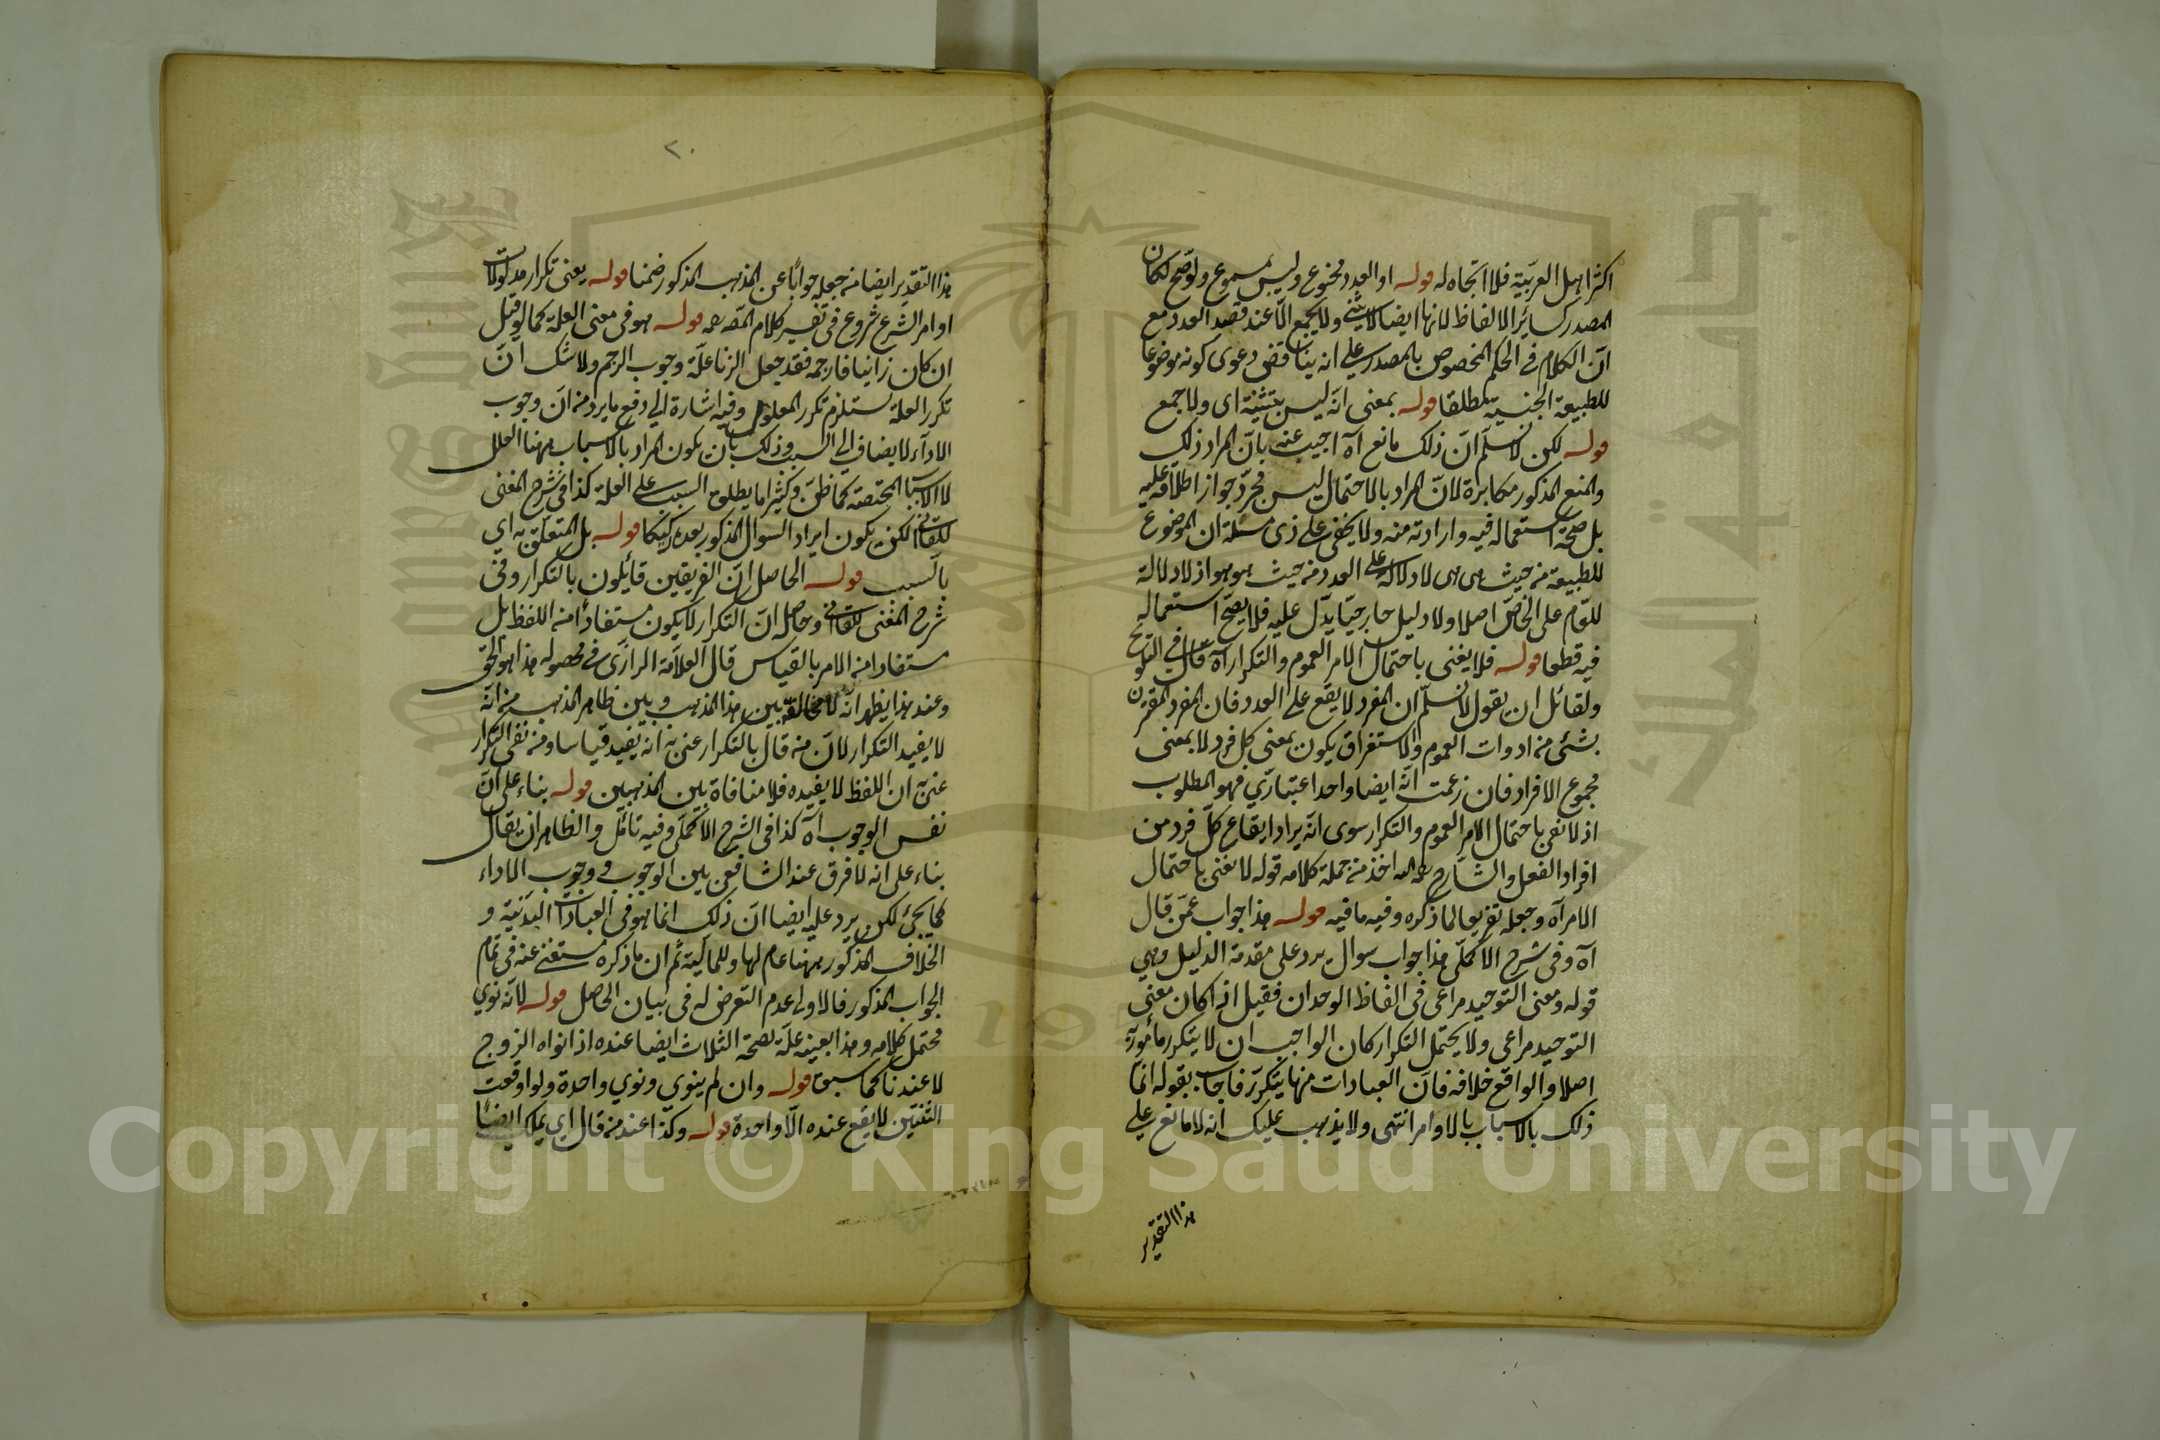 اكثر اهل العربية فلا اتجاه له قوله او العدد ممنوع وليس بمسموع ولو صح لكان
المصدر كسائر الالفاظ لانها ايضا لا يثنى ولا يجمع الا عند قصد العدد مع
ان الكلام في الحكم المخصوص بالمصدر على انه يناقض دعوى كونه موضوعا
للطبيعة الجنسية مطلقا قوله بمعنى انه ليس بتثنية اى ولا جمع
قوله لكن لا نسلم ان ذلك مانع آه اجيب عنه بان المراد ذلك
والمنع المذكور مكابرة لان المراد بالاحتمال ليس مجرد جواز اطلاقه عليه
بل صحة استعماله فيه وارادته منه ولا يخفى على ذى مسئلة ان الموضوع
للطبيعة من حيث هى هى لا دلالة على العدد من حيث هو هو اذ لا دلالة
للعام على الخاص اصلا ولا دليل خارجيا يدل عليه فلا يصح استعماله
فيه قطعا قوله فلا يغنى باحتمال الامر العموم والتكرار آه قال في التلويح
ولقائل ان يقول لا نسلم ان المفرد لا يقع على العدد فان المفرد المقرون
بشئ من ادوات العموم والاستغراق يكون بمعنى كل فرد لا بمعنى
مجموع الافراد فان زعمت انه ايضا واحد اعتبارى فهو المطلوب
اذ لا نعنى باحتمال الامر العموم والتكرار سوى انه يراد ايقاع كل فرد من
افراد الفعل والشارح رحمه الله اخذ من جملة كلامه قوله لا نعنى باحتمال
الامر آه وجعله تفريعا لما ذكره وفيه ما فيه قوله هذا جواب عمن قال
آه وفى شرح الاكملى هذا جواب سوال يرد على مقدمة الدليل وهي
قوله ومعنى التوحيد مراعى فى الفاظ الوحدان فقيل اذا كان معنى
التوحيد مراعى ولا يحتمل التكرار كان الواجب ان لا يتكرر مأمور به
اصلا والواقع خلافه فان العبادات منها يتكرر فاجاب بقوله انما
ذلك بالاسباب بالاوامر انتهى ولا يذهب عليك انه لا مانع على
هذا التقدير
٢٠
هذا التقدير ايضا من جعله جوابا عن المذهب المذكور ضمنا قوله يعنى تكرار مدلولات
اوامر الشرع شروع فى تفسير كلام المص رحمه قوله هو فى معنى العلة كما لو قيل
ان كان زانيا فارجمه فقد جعل الزنا علة وجوب الرجم ولا شك ان
تكرر العلة يستلزم تكرر المعلول وفيه اشارة الى دفع ما يرد من ان وجوب
الاداء لا يضاف الى السبب وذلك بان يكون المراد بالاسباب ههنا العلل
لا الاسباب المحتصة كما ظن وكثيرا ما يطلق السبب على العلة كذا فى شرح المغنى
للقاانى لكن يكون ايراد السوال المذكور بعده ركيكا قوله بل المتعلق به اى
بالسبب قوله الحاصل ان الفريقين قائلون بالتكرار وفى
شرح المغنى للقاانى وحاصله ان التكرار لا يكون مستفادا من اللفظ بل
مستفادا من الامر بالقياس قال العلامة الرازى فى محصوله هذا هو الحق
وعند هذا يظهر انه لا مخالفة بين هذا المذهب وبين ظاهر المذهب من انه
لا يفيد التكرار لان من قال بالتكرار عنى به انه يفيد قياسا ومن نفى التكرار
عنى به ان اللفظ لا يفيده فلا منافاة بين المذهبين قوله بناء على ان
نفس الوجوب آه كذا فى الشرح الاكملى وفيه تامل والظاهر ان يقال
بناء على انه لا فرق عند الشافعى بين الوجوب ووجوب الاداء
كما يجئ لكن يرد عليه ايضا ان ذلك انما هو فى العبادات البدنية و
الخلاف المذكور ههنا عام لها وللمالية ثم ان ما ذكره مستغنى عنه فى تمام
الجواب المذكور فالاولى عدم التعرض له فى بيان الحاصل قوله لانه نوى
محتمل كلامه وهذا بعينه علة لصحة الثلاث ايضا عنده اذا نواه الزوج
لا عندنا كما سبق قوله وان لم ينوى ونوى واحدة ولو اوقعت
الثنتين لا يقع عنده الا واحدة قوله وكذا عند من قال اى يملك ايضا
Copyright © King Saud University